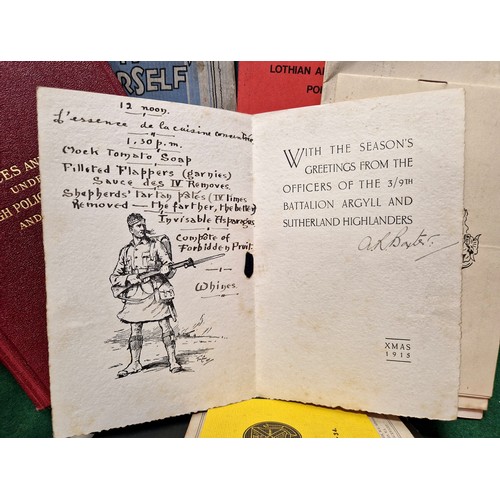 ERSELF
LOTHIAN A
PO
ES AN
UNDE
GH POLIC
AND
12 noon.
L'essence de la cuisine
1.30 p.m.
Mock Tomato Soap
Filleted Flappers (garnies)
Sauce des IV Removes.
Shepherds' Tartan pales (IV times
Removed — the farther, the better)
Invisible Asparagus
Compote of
Forbidden Fruit.
Whines.
WITH THE SEASON'S
GREETINGS FROM THE
OFFICERS OF THE 3/9TH
BATTALION ARGYLL AND
SUTHERLAND HIGHLANDERS
XMAS
1915